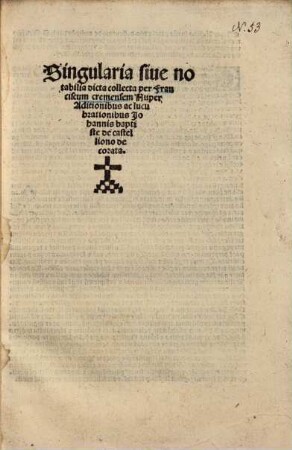 N. 53
Singularia siue no
tabilia dicta collecta per Fran
ciscum cremensem Nuper
Aditionibus ac lucu
brationibus Jo
hannis bapti
ste de castel
liono de
corata.